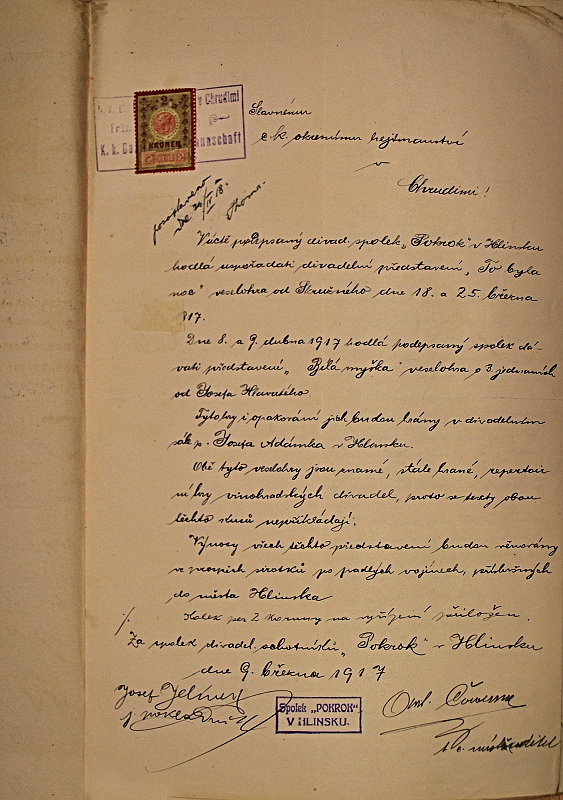 v Chrudimi
K. k.
2
KRONEN
Slavnému
c k. okresnímu hejtmanství
v
Chrudimi!
V úctě podepsaný divad. spolek „Pokrok" v Hlinsku
hodlá uspořádati divadelní představení „To byla
noc" veselohra od Skružného dne 18. a 25. března
917.
Dne 8. a 9. dubna 1917 hodlá podepsaný spolek dá-
vati představení „Bílá myška" veselohra o 3. jednáních
od Josefa
Tyto hry i opakování jich budou hrány v divadelním
sále p. Josefa Adámka v Hlinsku.
Obě tyto veselohry jsou známé, stále hrané, repertoir
ní hry vinohradských divadel, proto se texty obou
těchto kusů nepřikládají.
Výnosy všech těchto představení budou věnovány
ve prospěch sirotků po padlých vojínech, příslušných
do města Hlinska
Kolek per 2 koruny na vyřízení přiložen.
Za spolek divadel. ochotníků „Pokrok" v Hlinsku
dne 9. března 1917
Josef
Spolek „POKROK"
V HLINSKU.
Ant.